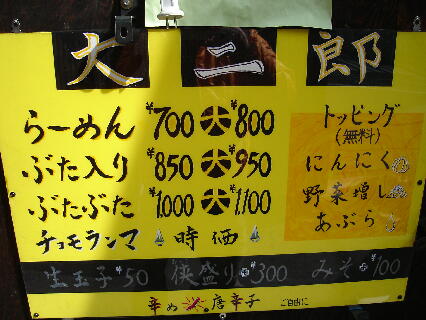 大二郎
らーめん ¥700 大 ¥800
ぶた入り ¥850 大 ¥950
ぶたぶた ¥1,000 大 ¥1,100
チョモランマ 時価
トッピング
(無料)
にんにく
野菜増し
あぶら
生玉子 ¥50 狭盛り ¥300 みそ ¥100
辛め 唐辛子 ご自由に